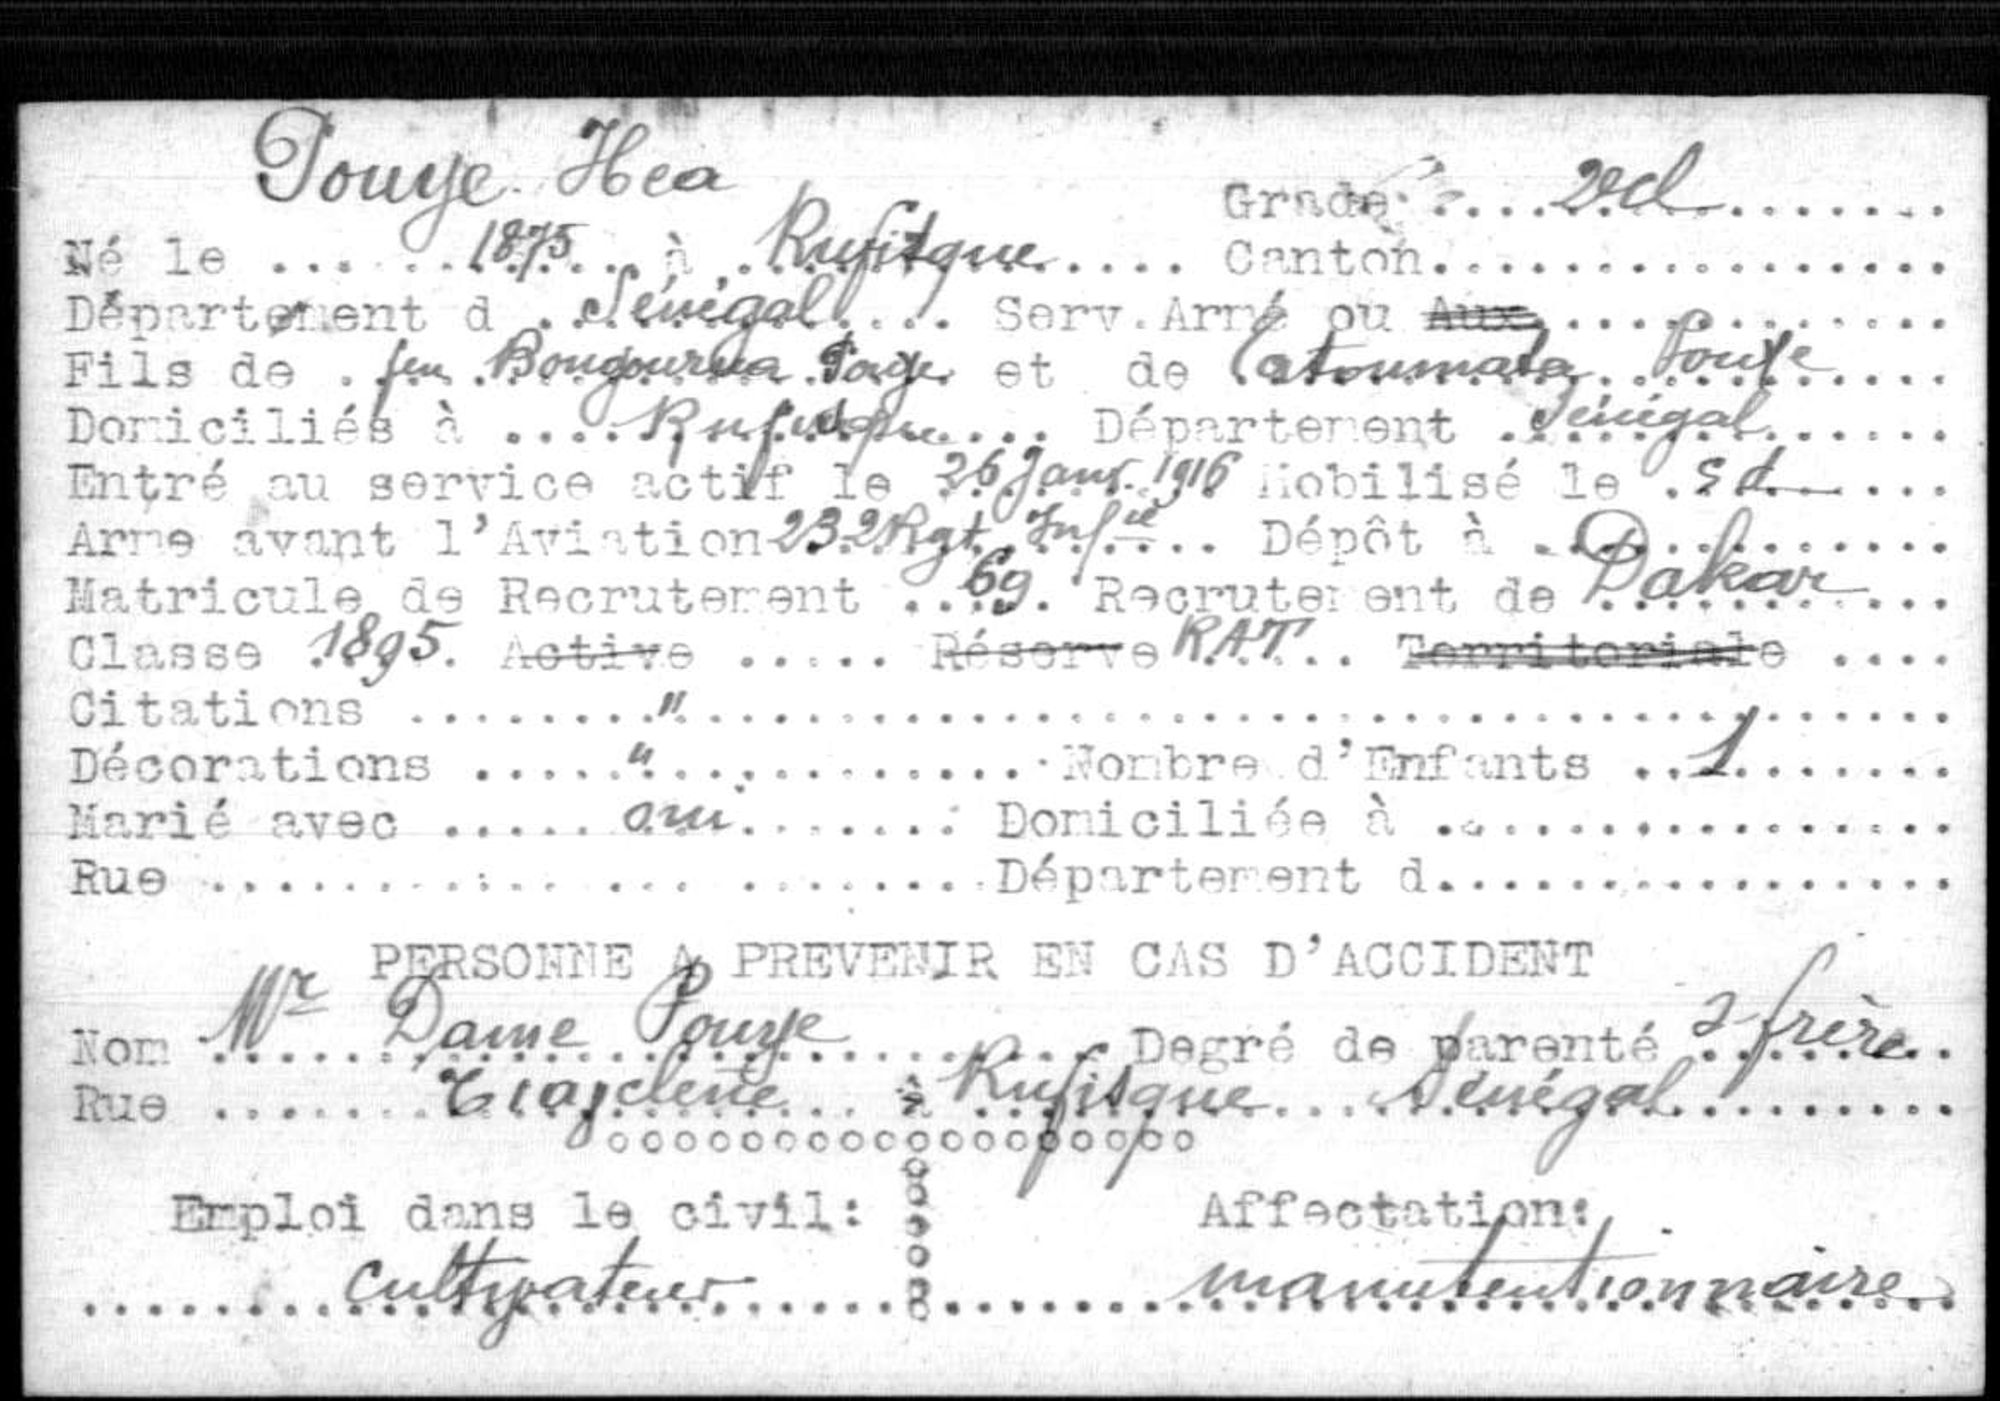 Pouye Hea
Grade .... 2e cl ........
Né le ...... 1875 .... à . Rufisque .... Canton..................
Département d . Sénégal .... Serv. Armé ou Aux..............
Fils de . feu Bougourma Pouye et de Fatoumata Pouye ....
Domiciliés à .... Rufisque .... Département . Sénégal ......
Entré au service actif le 26 Janv. 1916 Mobilisé le . s d ....
Arme avant l'Aviation 232 Rgt Inf ie ... Dépôt à ..............
Matricule de Recrutement .. 69 . Recrutement de Dakar ....
Classe 1895. Active ..... Réserve RAT .. Territoriale ....
Citations ........ " ........................................
Décorations ..... " ............. Nombre d'Enfants .. 1 .......
Marié avec ..... oui ....... Domiciliée à ..................
Rue ............................ Département d..................
PERSONNE A PREVENIR EN CAS D'ACCIDENT
Nom Mr Dame Pouye ........ Degré de parenté frère ..
Rue ........ à Rufisque .... Sénégal ..........
oooooooooooooooooooo
Emploi dans le civil: Affectation:
cultivateur manutentionnaire